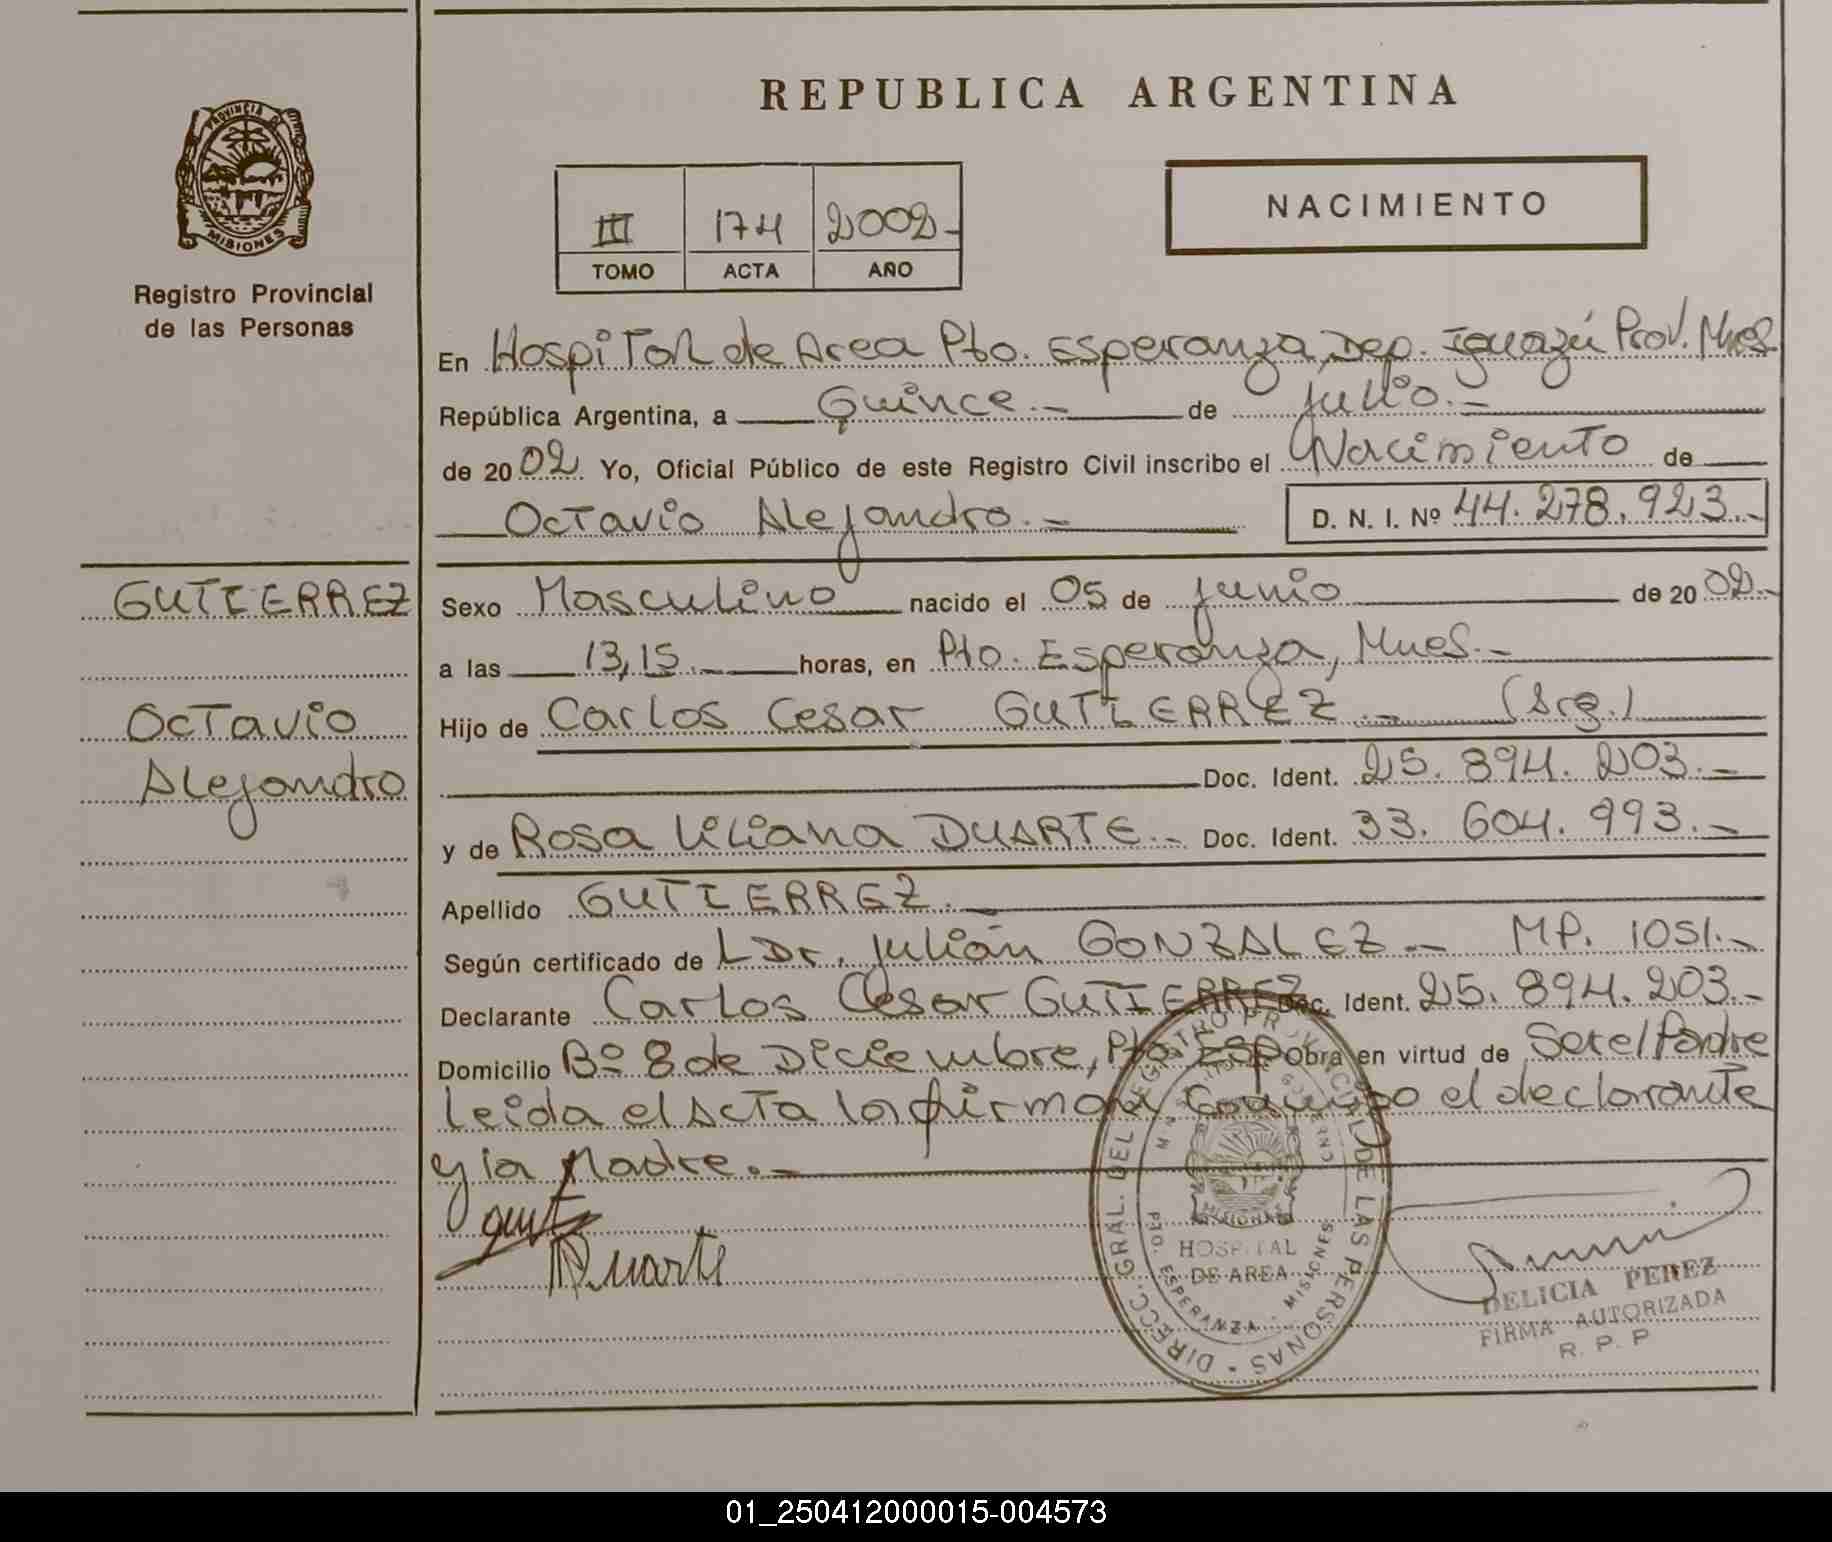 REPUBLICA ARGENTINA
PROVINCIA DE
MISIONES
Registro Provincial
de las Personas
III 174 2002-
TOMO ACTA AÑO
NACIMIENTO
En Hospital de Area Pto. Esperanza, Dep. Iguazú Prov. Mnes.
República Argentina, a Quince.- de julio.-
de 2002 Yo, Oficial Público de este Registro Civil inscribo el Nacimiento de
Octavio Alejandro.- D. N. I. Nº 44.278.923.-
GUTIERREZ
Octavio
Alejandro
Sexo Masculino nacido el 05 de junio de 2002.-
a las 13,15.- horas, en Pto. Esperanza, Mnes.-
Hijo de Carlos Cesar GUTIERREZ.- (Arg.)
Doc. Ident. 25.894.203.-
y de Rosa Liliana DUARTE.- Doc. Ident. 33.604.993.-
Apellido GUTIERREZ.-
Según certificado de L Dr. Julián GONZALEZ.- MP. 1051.-
Declarante Carlos Cesar GUTIERREZ Doc. Ident. 25.894.203.-
Domicilio Bº 8 de Diciembre, Pto. Esp Obra en virtud de Ser el Padre
Leida el Acta la firman conmigo el declarante
y la Madre.-
Duarte
DIRECC. GRAL. DEL REGISTRO PROVINCIAL DE LAS PERSONAS
MISIONES
HOSPITAL
DE AREA
PTO. ESPERANZA - MISIONES
DELICIA PEREZ
FIRMA AUTORIZADA
R. P. P
01_250412000015-004573